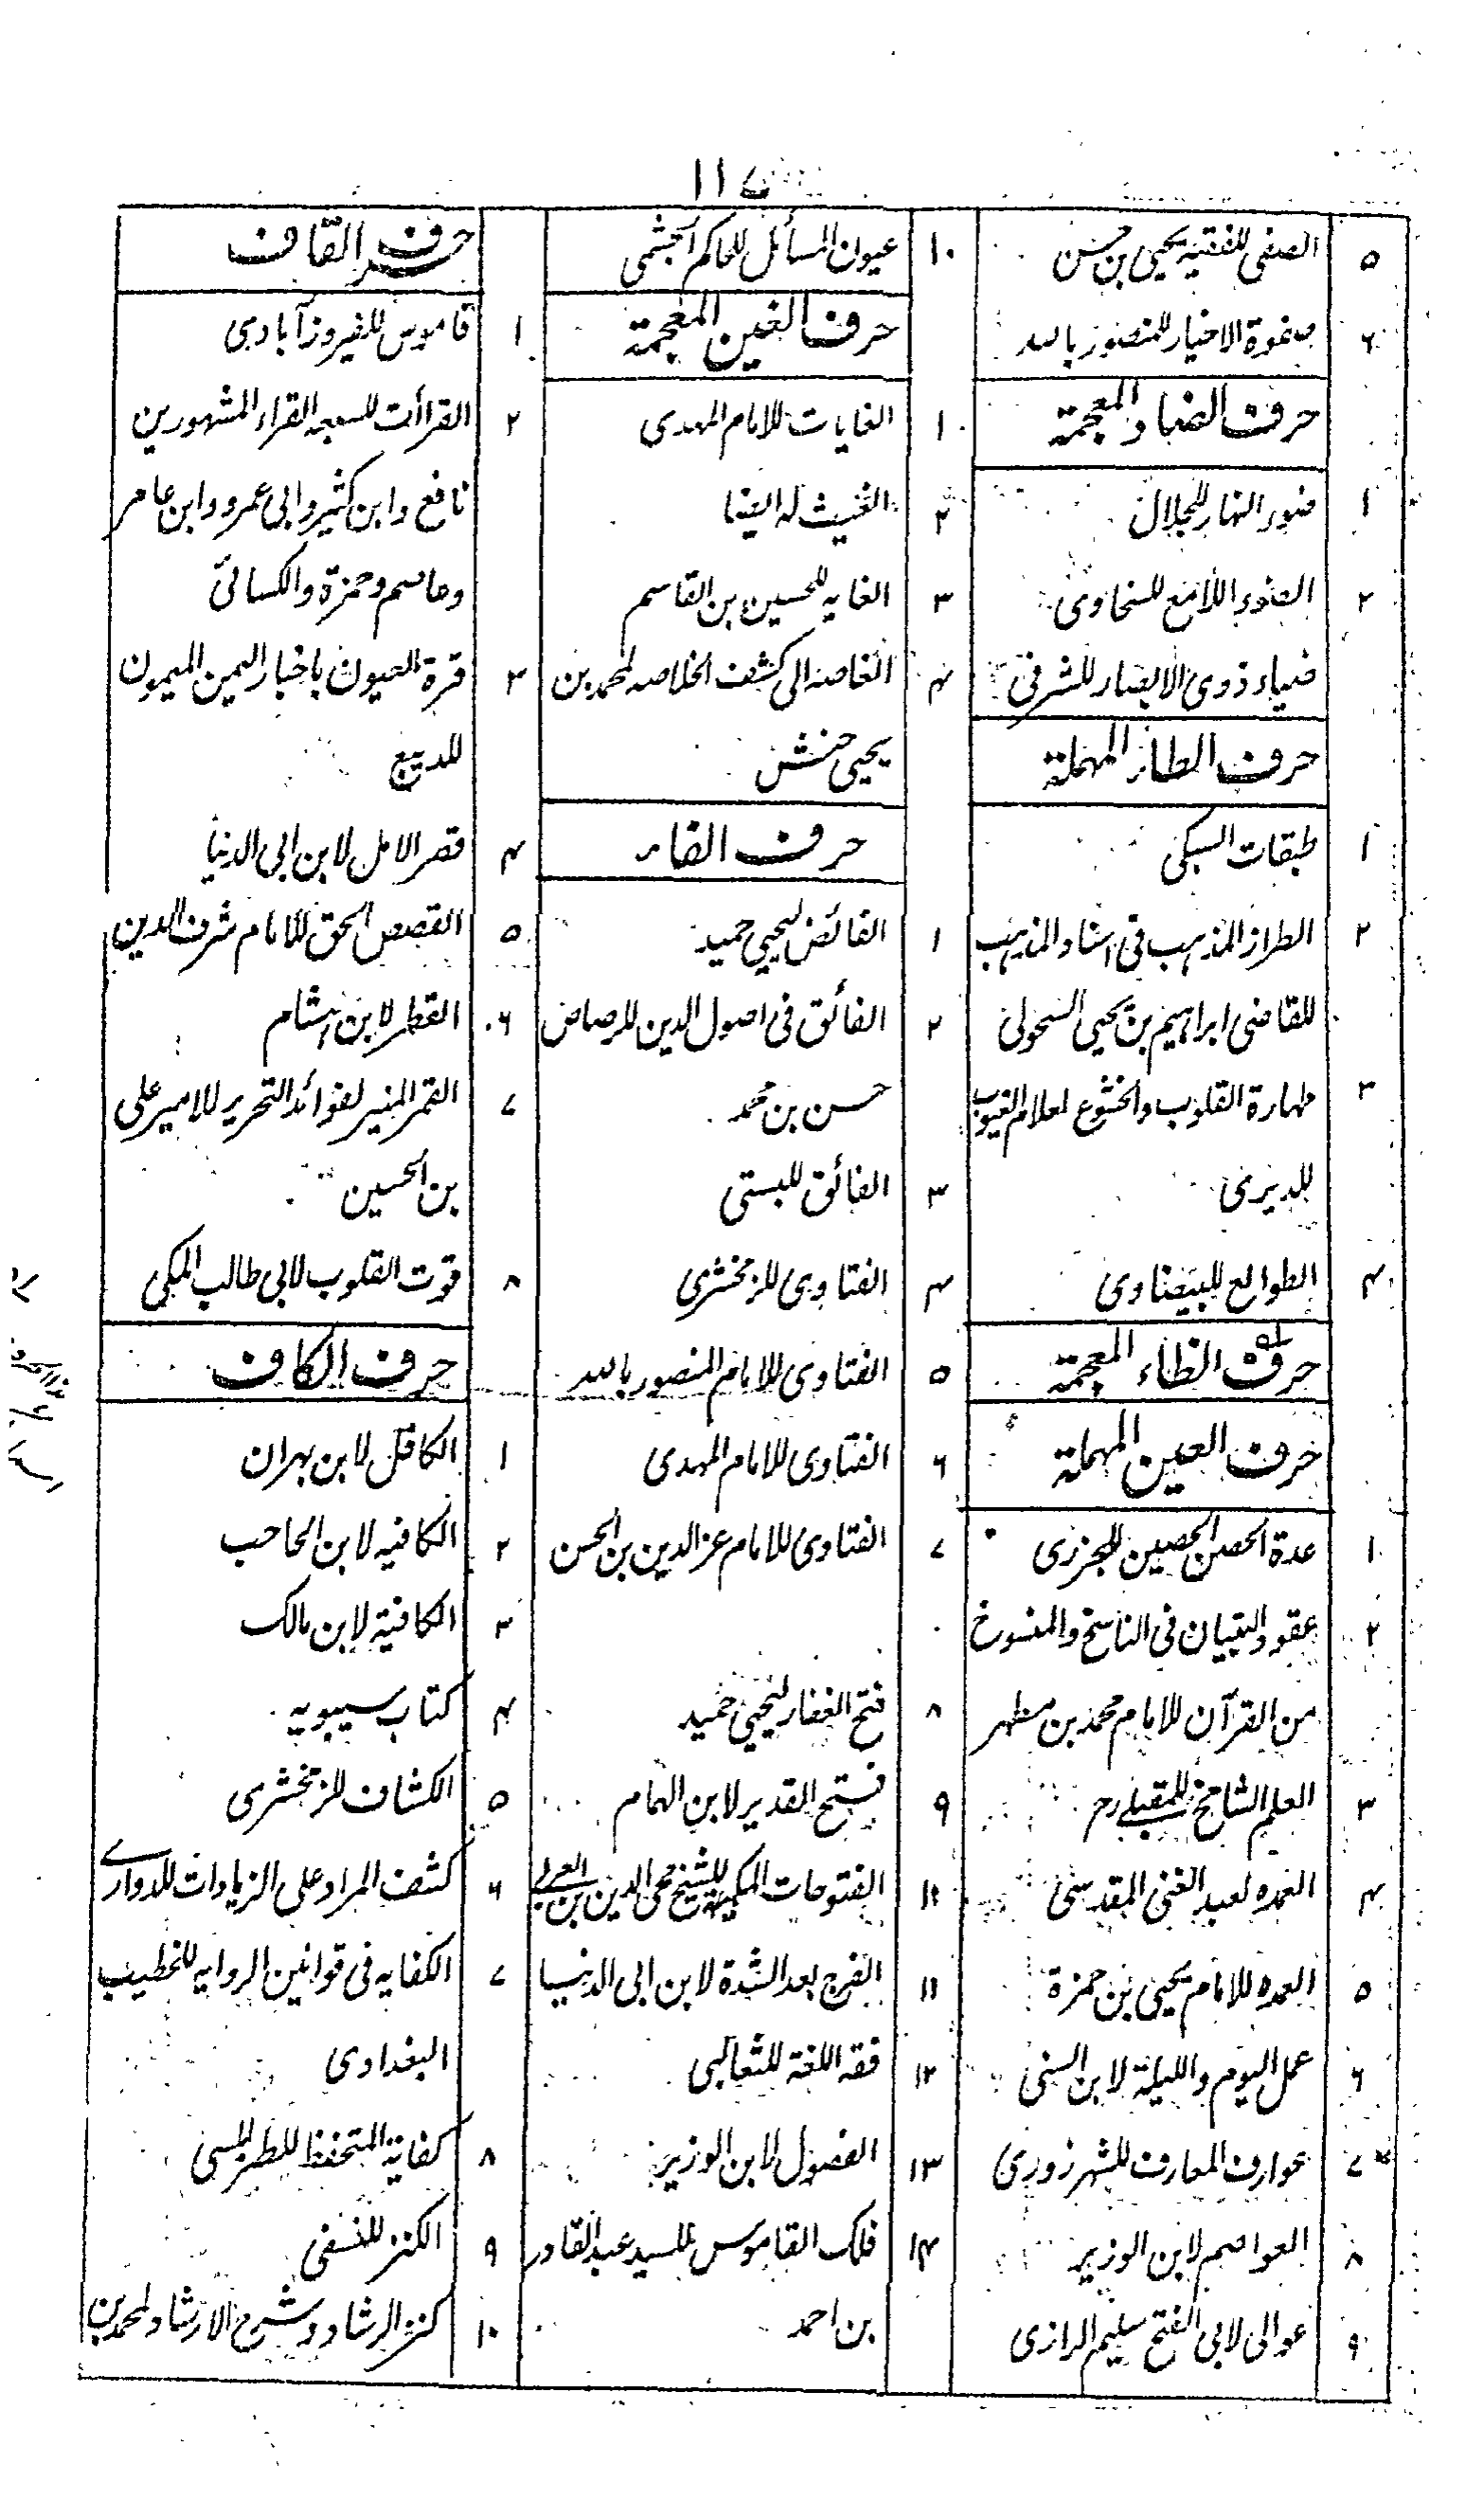 ١١٧
٥ الصفى للفقيه يحيى بن حسن
٦ صفوة الاختيار للمنصور بالله
حرف الضاد المعجمة
١ ضوء النهار للجلال
٢ الضوء اللامع للسخاوى
ضياء ذوى الابصار للشرفى
حرف الطاء المهملة
١ طبقات السبكى
٢ الطراز المذهب فى اسناد المذهب
للقاضى ابراهيم بن يحيى السحولى
٣ طهارة القلوب والخشوع لعلام الغيوب
للديرينى
٤ الطوالع للبيضاوى
حرف الظاء المعجمة
حرف العين المهملة
١ عدة الحصن الحصين للجزرى
٢ عقود العقيان فى الناسخ والمنسوخ
من القرآن للامام محمد بن مطهر
٣ العلم الشامخ للمقبلے رح
٤ العمده لعبد الغنى المقدسى
٥ العمده للامام يحيى بن حمزة
٦ عمل اليوم والليلة لابن السنى
٧ عوارف المعارف للشهرزورى
٨ العواصم لابن الوزير
٩ عوالى لابى الفتح سليم الرازى
١٠ عيون المسائل للحاكم الجشمى
حرف الغين المعجمة
١ الغايات للامام المهدى
٢ الغيث له ايضا
٣ الغايه للحسين بن القاسم
٤ الغاصه الى كشف الخلاصه لمحمد بن
يحيى حنش
حرف الفاء
١ الفائض ليحيى حميد
٢ الفائق فى اصول الدين للرصاص
حسن بن محمد
٣ الفائق للبستى
٤ الفتاوى للزمخشرى
٥ الفتاوى للامام المنصور بالله
٦ الفتاوى للامام المهدى
٧ الفتاوى للامام عز الدين بن الحسن
٨ فتح الغفار ليحيى حميد
٩ فتح القدير لابن الهمام
١١ الفتوحات المكية للشيخ محى الدين بن العربى
١١ الفرج بعد الشدة لابن ابى الدنيا
١٢ فقه اللغة للثعالبى
١٣ الفصول لابن الوزير
١٤ فلك القاموس للسيد عبد القادر
بن احمد
حرف القاف
١ قاموس للفيروزآبادى
٢ القراأت للسبعه القراء المشهورين
نافع وابن كثير وابى عمرو وابن عامر
وعاصم وحمزة والكسائى
٣ قرة العيون باخبار اليمن الميمون
للديبع
٤ قصر الامل لابن ابى الدنيا
٥ القصص الحق للامام شرف الدين
٦ القطر لابن هشام
٧ القمر المنير لفوائد التحرير للامير على
بن الحسين
٨ قوت القلوب لابى طالب المكى
حرف الكاف
١ الكافل لابن بهران
٢ الكافيه لابن الحاجب
٣ الكافية لابن مالك
٤ كتاب سيبويه
٥ الكشاف للزمخشرى
٦ كشف المراد على الزيادات للدوارے
٧ الكفايه فى قوانين الروايه للخطيب
البغدادى
٨ كفاية المتحفظ للطرابلسى
٩ الكنز للنسفى
١٠ كنز الرشاد وشرح الارشاد لمحمد بن